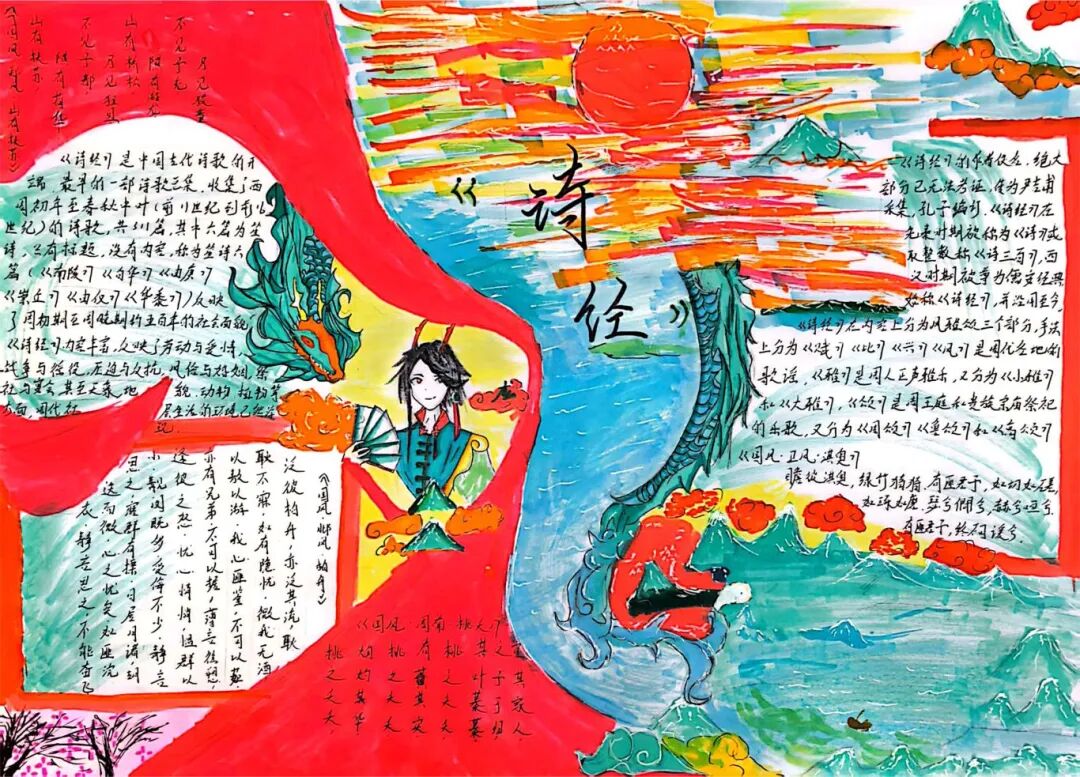 《诗经》
《国风·郑风·山有扶苏》
山有扶苏，
隰有荷华。
不见子都，
乃见狂且。
山有桥松，
隰有游龙。
不见子充，
乃见狡童。
《诗经》是中国古代诗歌的开
端，最早的一部诗歌总集，收集了西
周初年至春秋中叶(前11世纪到前6
世纪)的诗歌，共311篇，其中六篇为笙
诗，只有标题，没有内容，称为笙诗六
篇(《南陔》《白华》《由庚》
《崇丘》《由仪》《华黍》)反映
了周初期至周晚期约五百年的社会面貌
《诗经》内容丰富，反映了劳动与爱情、
战争与徭役、压迫与反抗、风俗与婚姻、祭
社与宴会，甚至天象、地貌、动物、植物等
方面，周代社
《诗经》的作者佚名，绝大
部分已无法考证，传为尹吉甫
采集，孔子编订。《诗经》在
先秦时期被称为《诗》或
取整数称《诗三百》，西
汉时期被尊为儒家经典
始称《诗经》，并沿用至今。
《诗经》在内容上分为风雅颂三个部分，手法
上分为《赋》《比》《兴》《风》是周代各地的
歌谣，《雅》是周人正声雅乐，又分为《小雅》
和《大雅》，《颂》是周王庭和贵族宗庙祭祀
的乐歌，又分为《周颂》《鲁颂》和《商颂》
《国风·卫风·淇奥》
瞻彼淇奥，绿竹猗猗，有匪君子，如切如磋，
如琢如磨，瑟兮僩兮，赫兮咺兮，
有匪君子，终不可谖兮。
《国风·邶风·柏舟》
泛彼柏舟，亦泛其流，耿
耿不寐，如有隐忧，微我无酒
以敖以游。我心匪鉴，不可以茹，
亦有兄弟，不可以据，薄言往愬，
逢彼之怒。忧心悄悄，愠群以
小，觏闵既多，受侮不少，静言
思之，寤辟有摽。日居月诸，胡
迭而微，心之忧矣，如匪浣
衣，静言思之，不能奋飞
《国风·周南·桃夭》
桃之夭夭，
灼灼其华
桃之夭夭
有蕡其实
桃之夭夭
其叶蓁蓁
之子于归
宜其家人